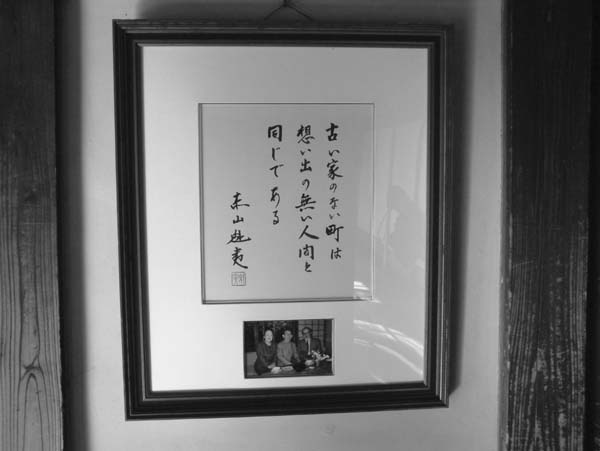 古い家のない町は
想い出の無い人間と
同じである
東山魁夷